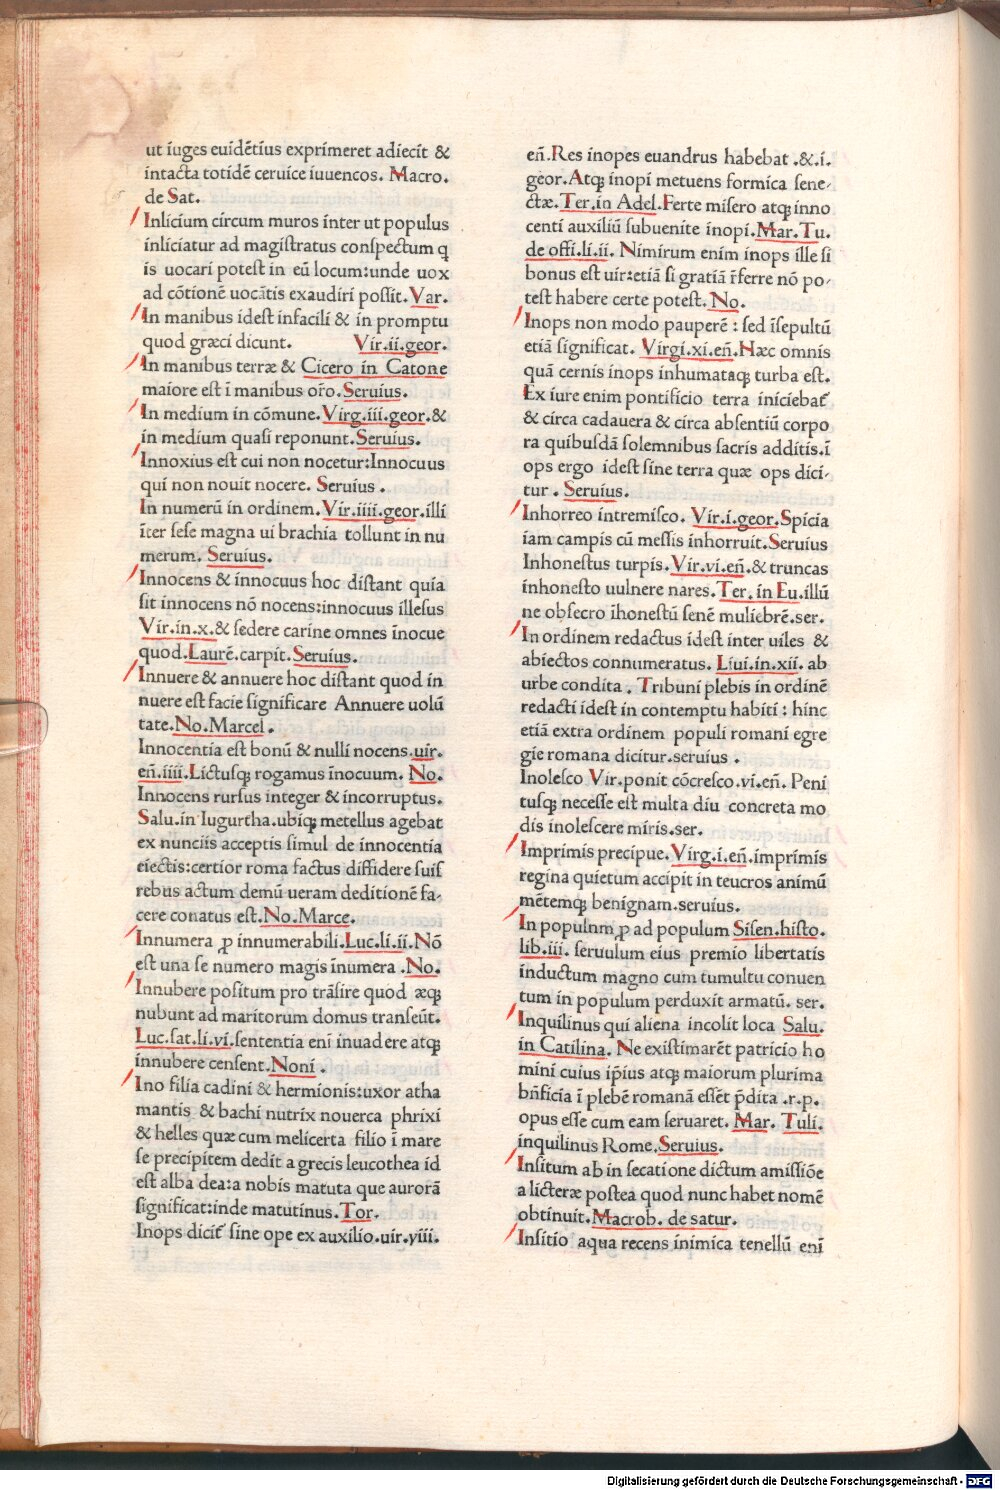 ut iuges euidētius exprimeret adiecit &
intacta totidē ceruice iuuencos. Macro.
de Sat.
Inlicium circum muros inter ut populus
inliciatur ad magistratus conspectum q
is uocari potest in eū locum:unde uox
ad cōtionē uocātis exaudiri possit.Var.
In manibus idest infacili & in promptu
quod græci dicunt. Vir.ii.geor.
In manibus terræ & Cicero in Catone
maiore est ī manibus oro.Seruius.
In medium in cōmune.Virg.iii.geor.&
in medium quasi reponunt.Seruius.
Innoxius est cui non nocetur:Innocuus
qui non nouit nocere. Seruius.
In numerū in ordinem.Vir.iiii.geor.illi
īter sese magna ui brachia tollunt in nu
merum. Seruius.
Innocens & innocuus hoc distant quia
sit innocens nō nocens:innocuus illesus
Vir.in.x.& sedere carine omnes īnocue
quod.Laurē.carpit.Seruius.
Innuere & annuere hoc distant quod in
nuere est facie significare Annuere uolū
tate.No.Marcel.
Innocentia est bonū & nulli nocens.uir.
eñ.iiii.Lictusq; rogamus īnocuum. No.
Innocens rursus integer & incorruptus.
Salu.in Iugurtha.ubiq; metellus agebat
ex nunciis acceptis simul de innocentia
eiectis:certior roma factus diffidere suis
rebus actum demū ueram deditionē fa-
cere conatus est.No.Marce.
Innumera ꝓ innumerabili.Luc.li.ii.Nō
est una se numero magis īnumera .No.
Innubere positum pro trāsire quod æq;
nubunt ad maritorum domus transeūt.
Luc.sat.li.vi.sententia eni inuadere atq;
innubere censent.Noni.
Ino filia cadini & hermionis:uxor atha
mantis & bachi nutrix nouerca phrixi
& helles quæ cum melicerta filio ī mare
se precipitem dedit a grecis leucothea id
est alba dea:a nobis matuta que aurorā
significat:inde matutinus.Tor.
Inops dicit᷑ sine ope ex auxilio.uir.yiii.
eñ.Res inopes euandrus habebat .&.i.
geor.Atq; inopi metuens formica sene-
ctæ.Ter.in Adel.Ferte misero atq; inno
centi auxiliū subuenite inopi.Mar.Tu.
de offi.li.ii. Nimirum enim inops ille si
bonus est uir:etiā si gratiā r̄ferre nō po-
test habere certe potest. No.
Inops non modo pauperē : sed īsepultū
etiā significat. Virgi.xi.eñ.Hæc omnis
quā cernis inops inhumataq; turba est.
Ex iure enim pontificio terra iniciebat᷑
& circa cadauera & circa absentiū corpo
ra quibusdā solemnibus sacris additis.ī
ops ergo idest sine terra quæ ops dici-
tur . Seruius.
Inhorreo intremisco. Vir.i.geor.Spicia
iam campis cū messis inhorruit.Seruius
Inhonestus turpis. Vir.vi.eñ.& truncas
inhonesto uulnere nares.Ter.in Eu.illū
ne obsecro īhonestū senē muliebrē.ser.
In ordinem redactus idest inter uiles &
abiectos connumeratus. Liui.in.xii. ab
urbe condita . Tribuni plebis in ordinē
redacti idest in contemptu habiti : hinc
etiā extra ordinem populi romani egre
gie romana dicitur.seruius .
Inolesco Vir.ponit cōcresco.vi.eñ. Peni
tusq; necesse est multa diu concreta mo
dis inolescere miris.ser.
Imprimis precipue. Virg.i.eñ.imprimis
regina quietum accipit in teucros animū
mētemq; benignam.seruius.
In populnm ꝓ ad populum Sisen.histo.
lib.iii. seruulum eius premio libertatis
inductum magno cum tumultu conuen
tum in populum perduxit armatū. ser.
Inquilinus qui aliena incolit loca Salu.
in Catilina. Ne existimarēt patricio ho
mini cuius ip̄ius atq; maiorum plurima
bñficia ī plebē romanā essēt p̄dita .r.p.
opus esse cum eam seruaret. Mar. Tuli.
inquilinus Rome.Seruius.
Insitum ab in secatione dictum amissiōe
a licteræ postea quod nunc habet nomē
obtinuit.Macrob. de satur.
Insitio aqua recens inimica tenellū enī
Digitalisierung gefördert durch die Deutsche Forschungsgemeinschaft - DFG